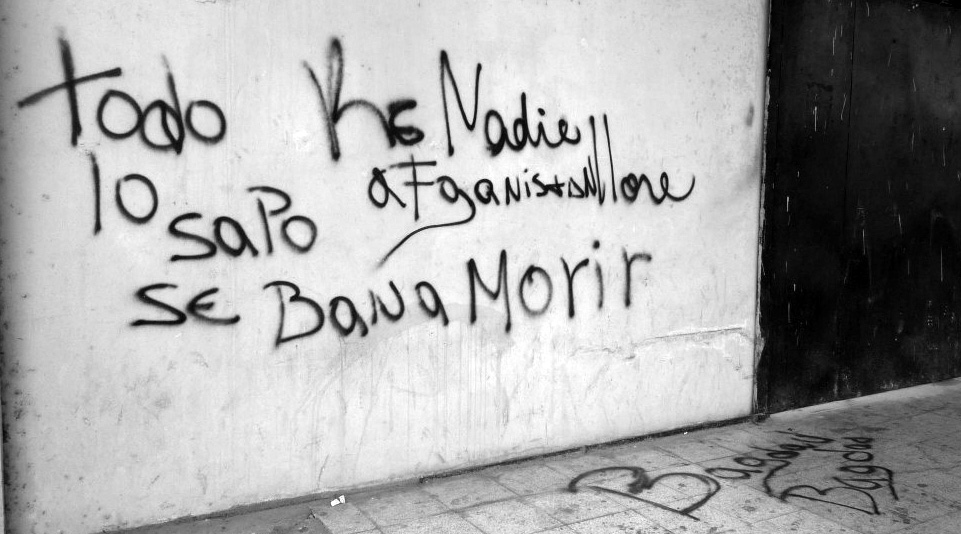 todo
lo
saPo
sE BaNa Morir
Ke Nadie
aFgaNistaN llore
Bagdad